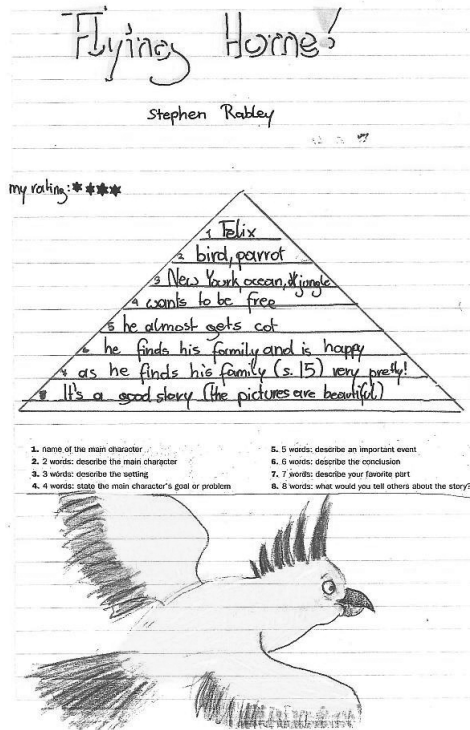 Flying Home!
Stephen Rabley
my rating: ****
1 Felix
2 bird, parrot
3 New Yourk, ocean, jungle
4 wants to be free
5 he almost gets cot
6 he finds his family and is happy
7 as he finds his family (s. 15) very pretty!
8 It's a good story (the pictures are beautiful)
1. name of the main character
2. 2 words: describe the main character
3. 3 words: describe the setting
4. 4 words: state the main character's goal or problem
5. 5 words: describe an important event
6. 6 words: describe the conclusion
7. 7 words: describe your favorite part
8. 8 words: what would you tell others about the story?